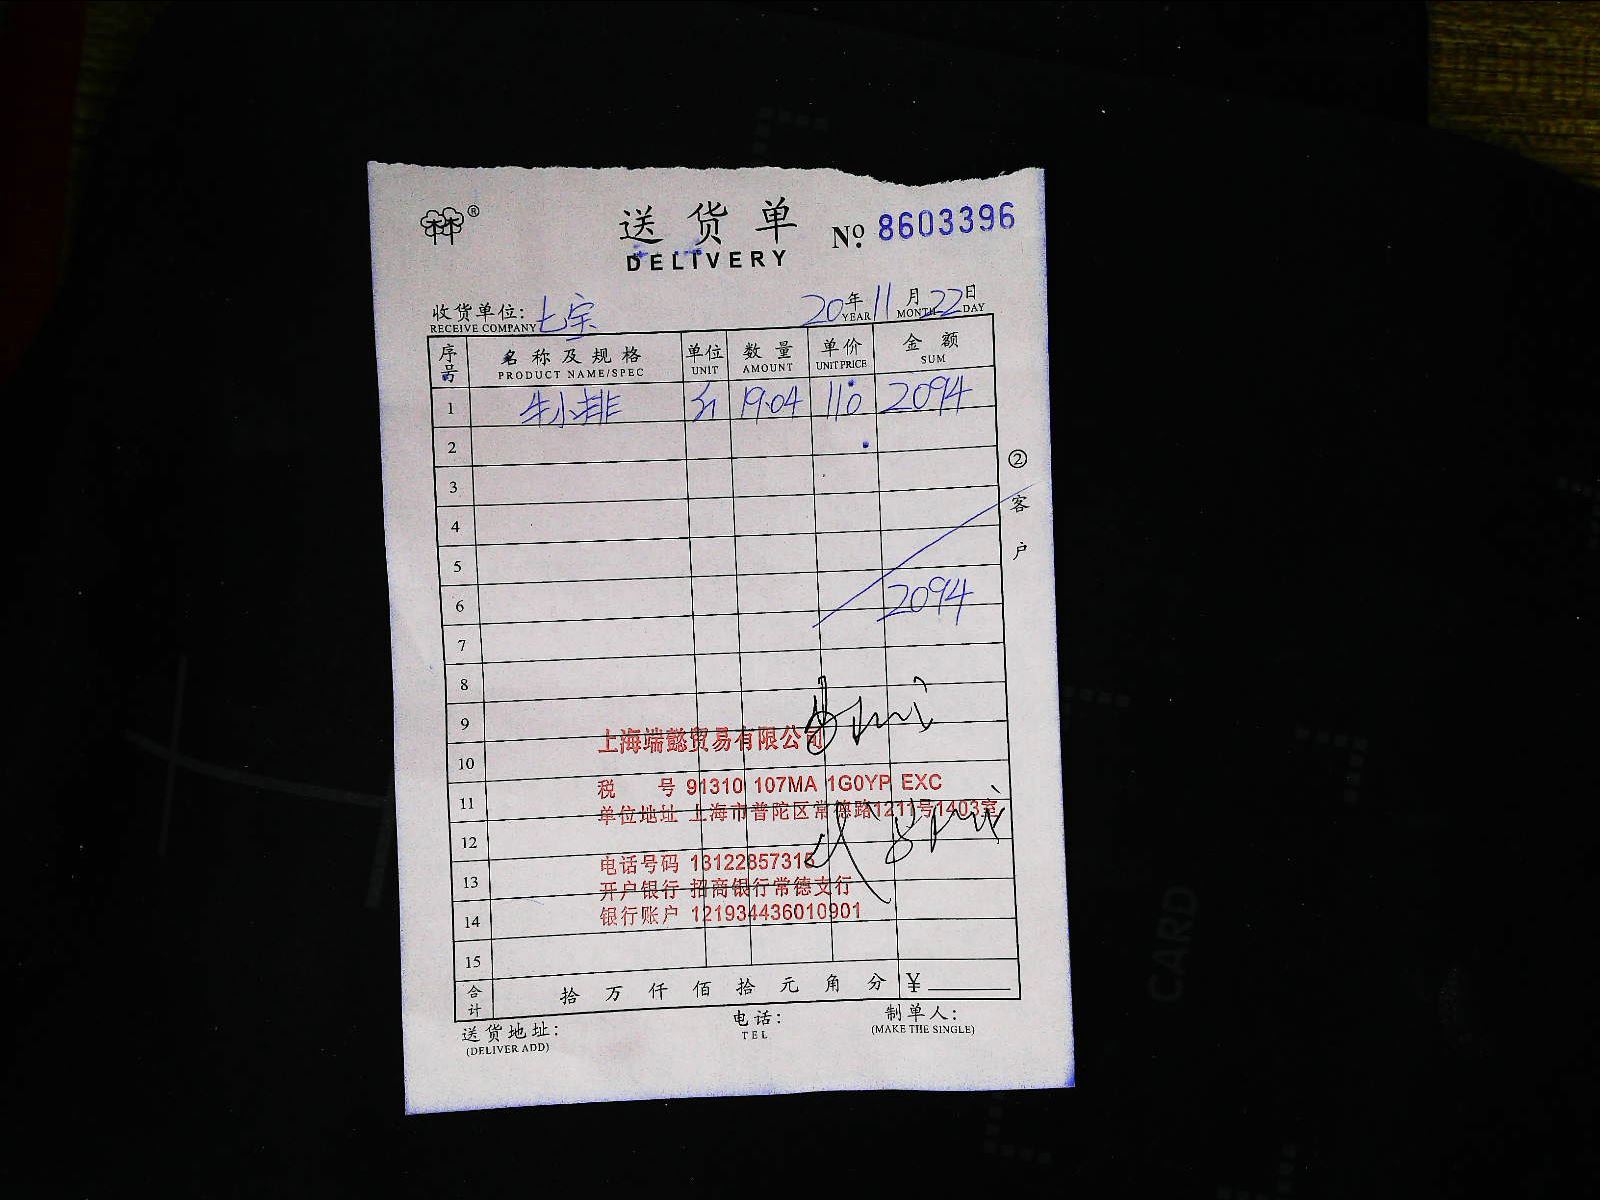 ®
送货单 No. 8603396
DELIVERY
收货单位: 七宝 20年11月22日
RECEIVE COMPANY YEAR MONTH DAY
序号 名称及规格 单位 数量 单价 金额
PRODUCT NAME/SPEC UNIT AMOUNT UNIT PRICE SUM
1 牛小排 斤 19.04 110 2094
2
3
4
5
6 2094
7
8
9
10
11
12
13
14
15
② 客户
上海端懿贸易有限公司
税 号 91310 107MA 1G0YP EXC
单位地址 上海市普陀区常德路1211号1403室
电话号码 13122857315
开户银行 招商银行常德支行
银行账户 121934436010901
合计 拾 万 仟 佰 拾 元 角 分 ¥
送货地址: 电话: 制单人:
(DELIVER ADD) TEL (MAKE THE SINGLE)
CARD